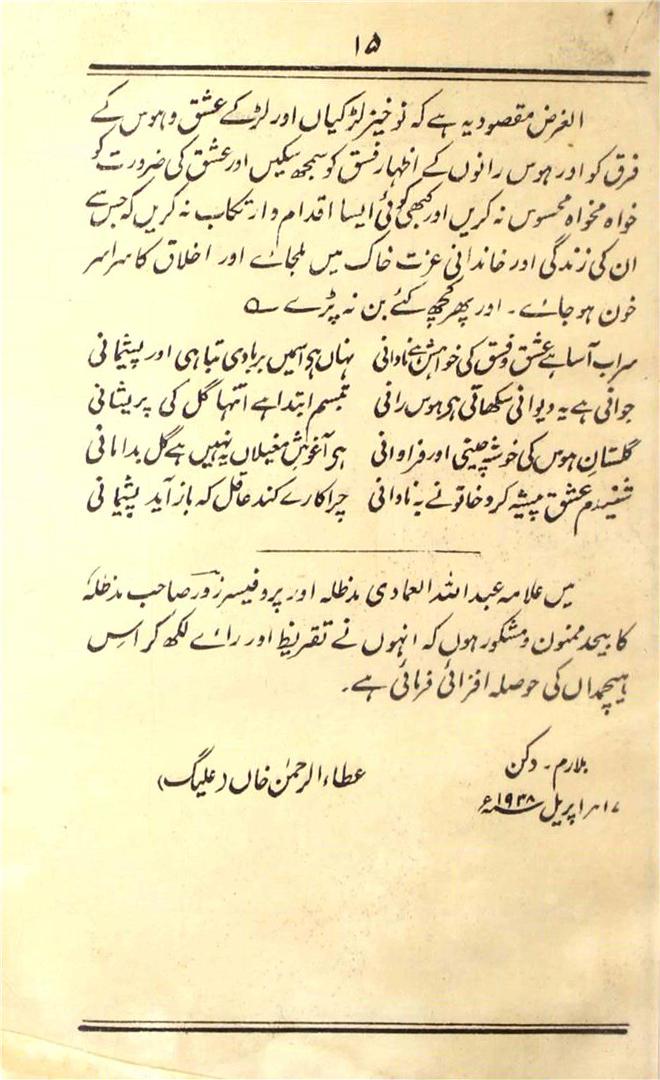 ۱۵
الغرض مقصود یہ ہے کہ نوخیز لڑکیاں اور لڑکے عشق و ہوس کے
فرق کو اور ہوس رانوں کے اظہار فسق کو سمجھ سکیں اور عشق کی ضرورت کو
خواہ مخواہ محسوس نہ کریں اور کبھی کوئی ایسا اقدام و ارتکاب نہ کریں کہ جس سے
ان کی زندگی اور خاندانی عزت خاک میں ملجاے اور اخلاق کا سراسر
خون ہو جاے۔ اور پھر کچھ کئے بن نہ پڑے ؎
سراب آسا ہے عشق و فسق کی خواہش ہے نادانی نہاں ہی اسمیں بربادی تباہی اور پشیمانی
جوانی ہے یہ دیوانی سکھاتی ہی ہوس رانی تبسم ابتدا ہے انتہا گل کی پریشانی
گلستانِ ہوس کی خوشہ چینی اور فراوانی ہی آغوشِ مغیلاں یہ نہیں ہے گل بدامانی
شنیدم عشق پیشہ کرد خاتونے بہ نادانی چرا کارے کند عاقل کہ باز آید پشیمانی
میں علامہ عبداللہ العمادی مدظلہ اور پروفیسر زور صاحب مدظلہٗ
کا بیحد ممنون و مشکور ہوں کہ انہوں نے تقریظ اور راے لکھ کر اس
ہیچمداں کی حوصلہ افزائی فرمائی ہے۔
بلارم۔ دکن
عطاء الرحمٰن خاں (علیگ)
۱۷ر اپریل سنہ ۱۹۳۸ء